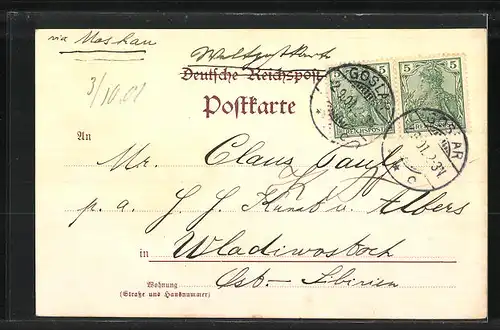 via Moskau
Weltpostkarte
3/10.01
Deutsche Reichspost
Postkarte
5 5
GOSLAR
REICHSPOST
GOSLAR
An
Mr. Claus
p. a. Kunst u. Albers
in Wladiwostock
Wohnung
(Straße und Hausnummer)
Ost-Sibirien